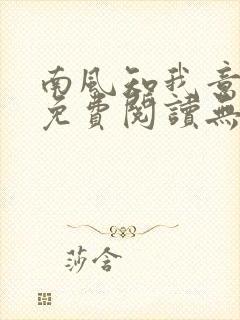 南風知我意
免費閱讀無
莎含